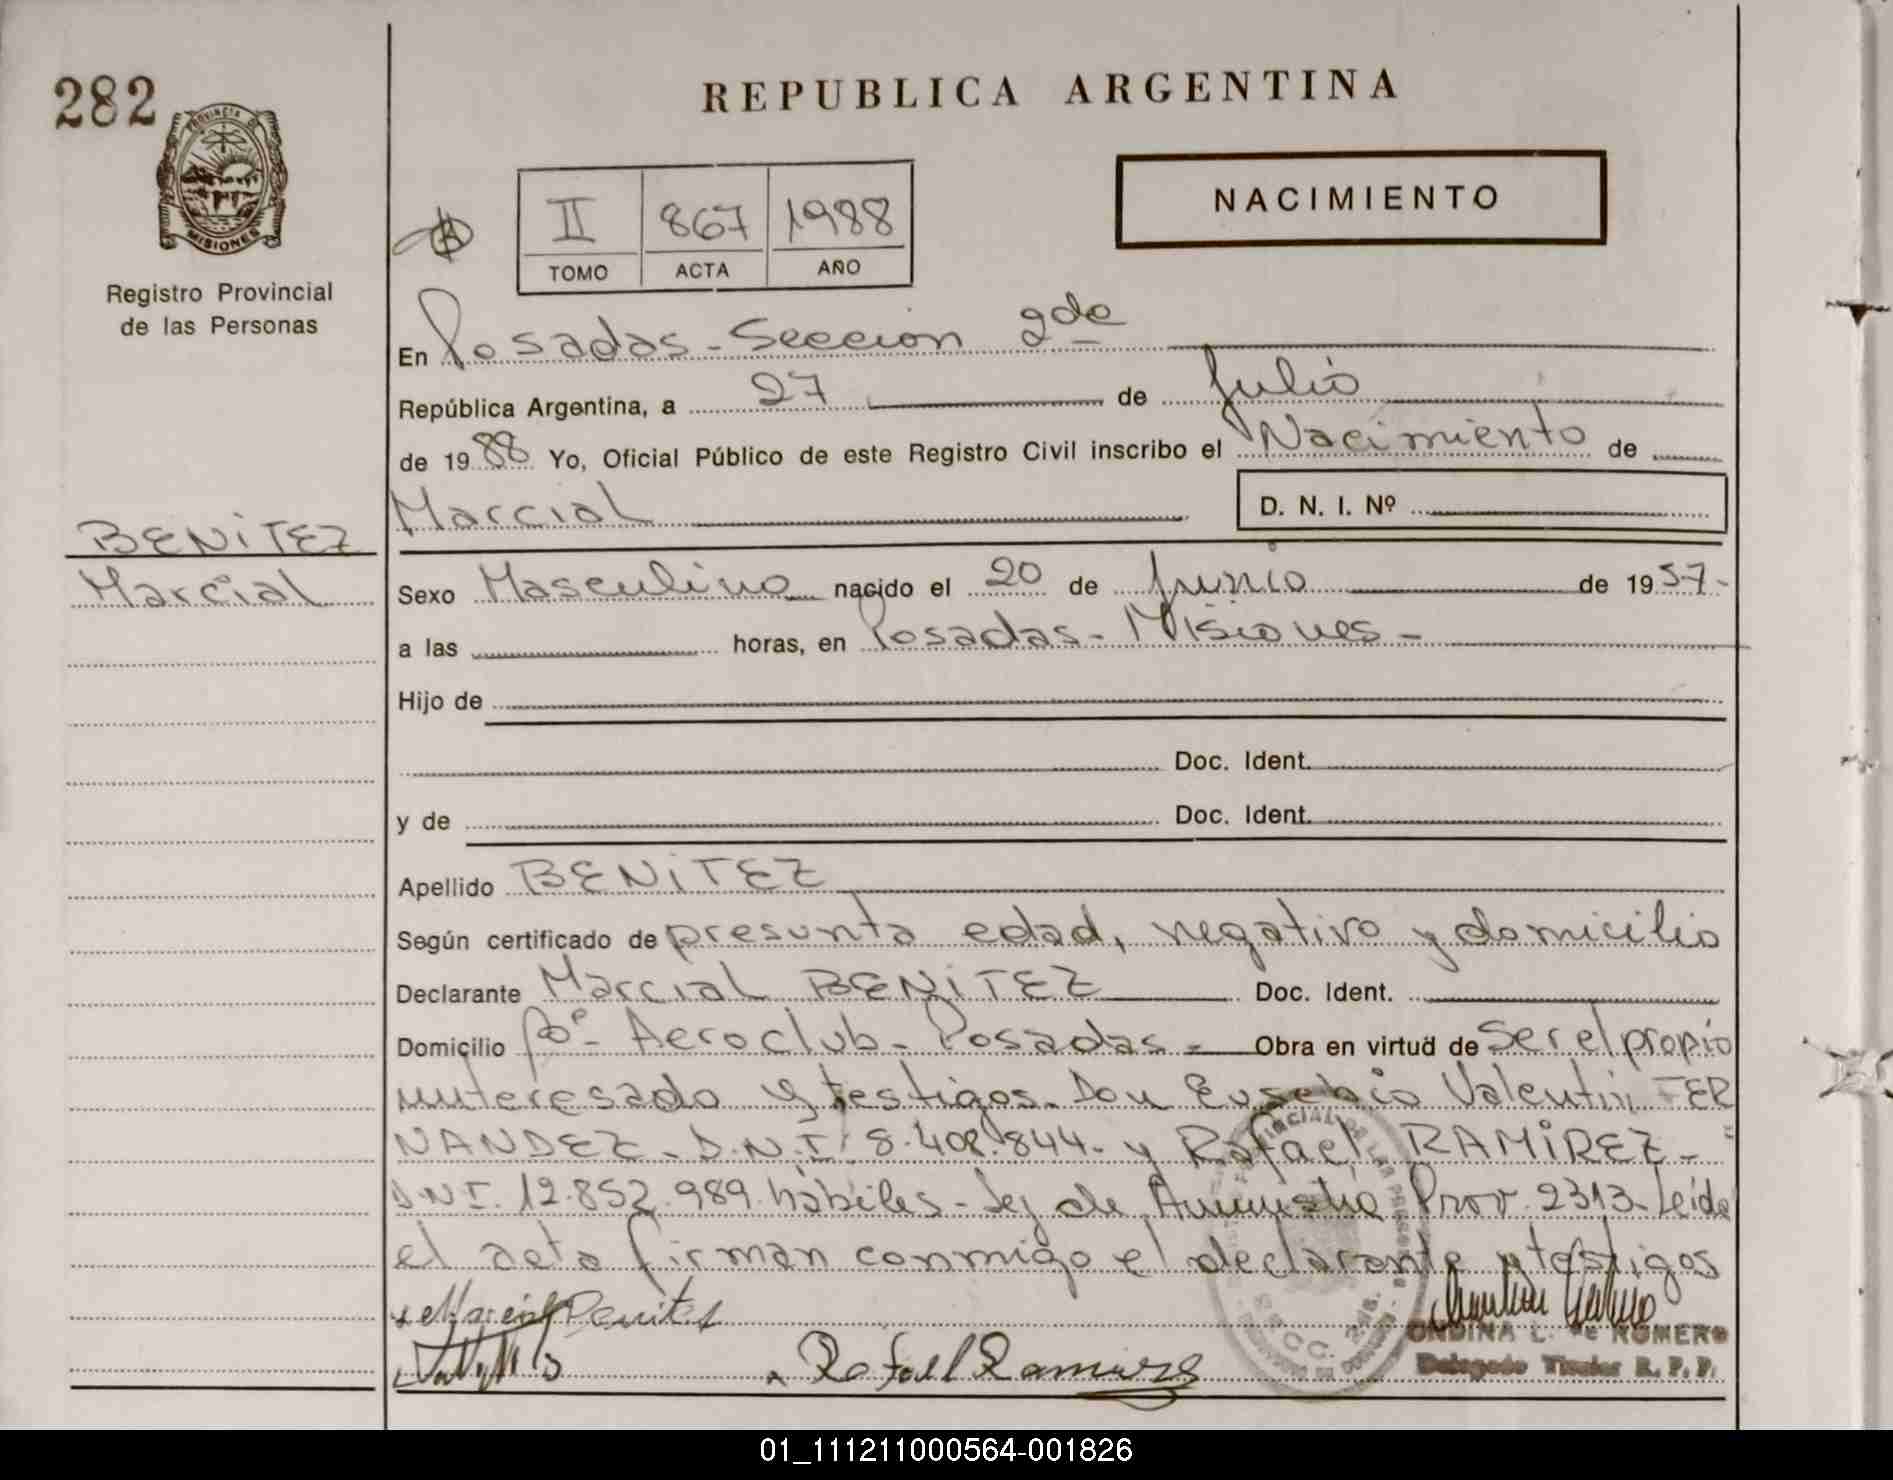 282
REPUBLICA ARGENTINA
PROVINCIA DE
MISIONES
NACIMIENTO
II 867 1988
TOMO ACTA AÑO
Registro Provincial
de las Personas
En Posadas - Seccion 2da
República Argentina, a 27 de Julio
de 1988 Yo, Oficial Público de este Registro Civil inscribo el Nacimiento de
Marcial D. N. I. Nº
BENITEZ
Marcial
Sexo Masculino nacido el 20 de Junio de 1957-
a las horas, en Posadas - Misiones -
Hijo de
Doc. Ident.
y de Doc. Ident.
Apellido BENITEZ
Según certificado de presunta edad, negativo y domicilio
Declarante Marcial BENITEZ Doc. Ident.
Domicilio Bº - Aeroclub - Posadas - Obra en virtud de Ser el propio
interesado y testigos. Don Eusebio Valentin FER
NANDEZ - D.N.I. 8.408.844 - y Rafael RAMIREZ -
D.N.I. 12.852.989 hábiles - Ley de Amnistia Prov. 2313 - Leida
el acta firman conmigo el declarante y testigos
Marcial Benites
Rafael Ramirez
SECC. 2da.
ONDINA L. DE ROMERO
Delegado Titular R. P. P.
01_111211000564-001826